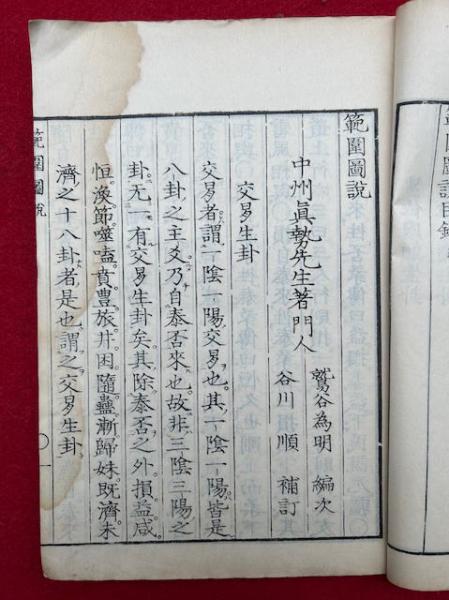 範圍圖說目錄
範圍圖說
中州眞勢先生著門人
鷲谷為明 編次
谷川順 補訂
交易生卦
交易者謂一陰一陽交易也其一陰一陽皆是
八卦之主爻乃自泰否來也故非三陰三陽之
卦无一有交易生卦矣其除泰否之外損益咸
恒渙節噬嗑賁豐旅井困隨蠱漸歸妹既濟未
濟之十八卦者是也謂之交易生卦
範圍圖說
一